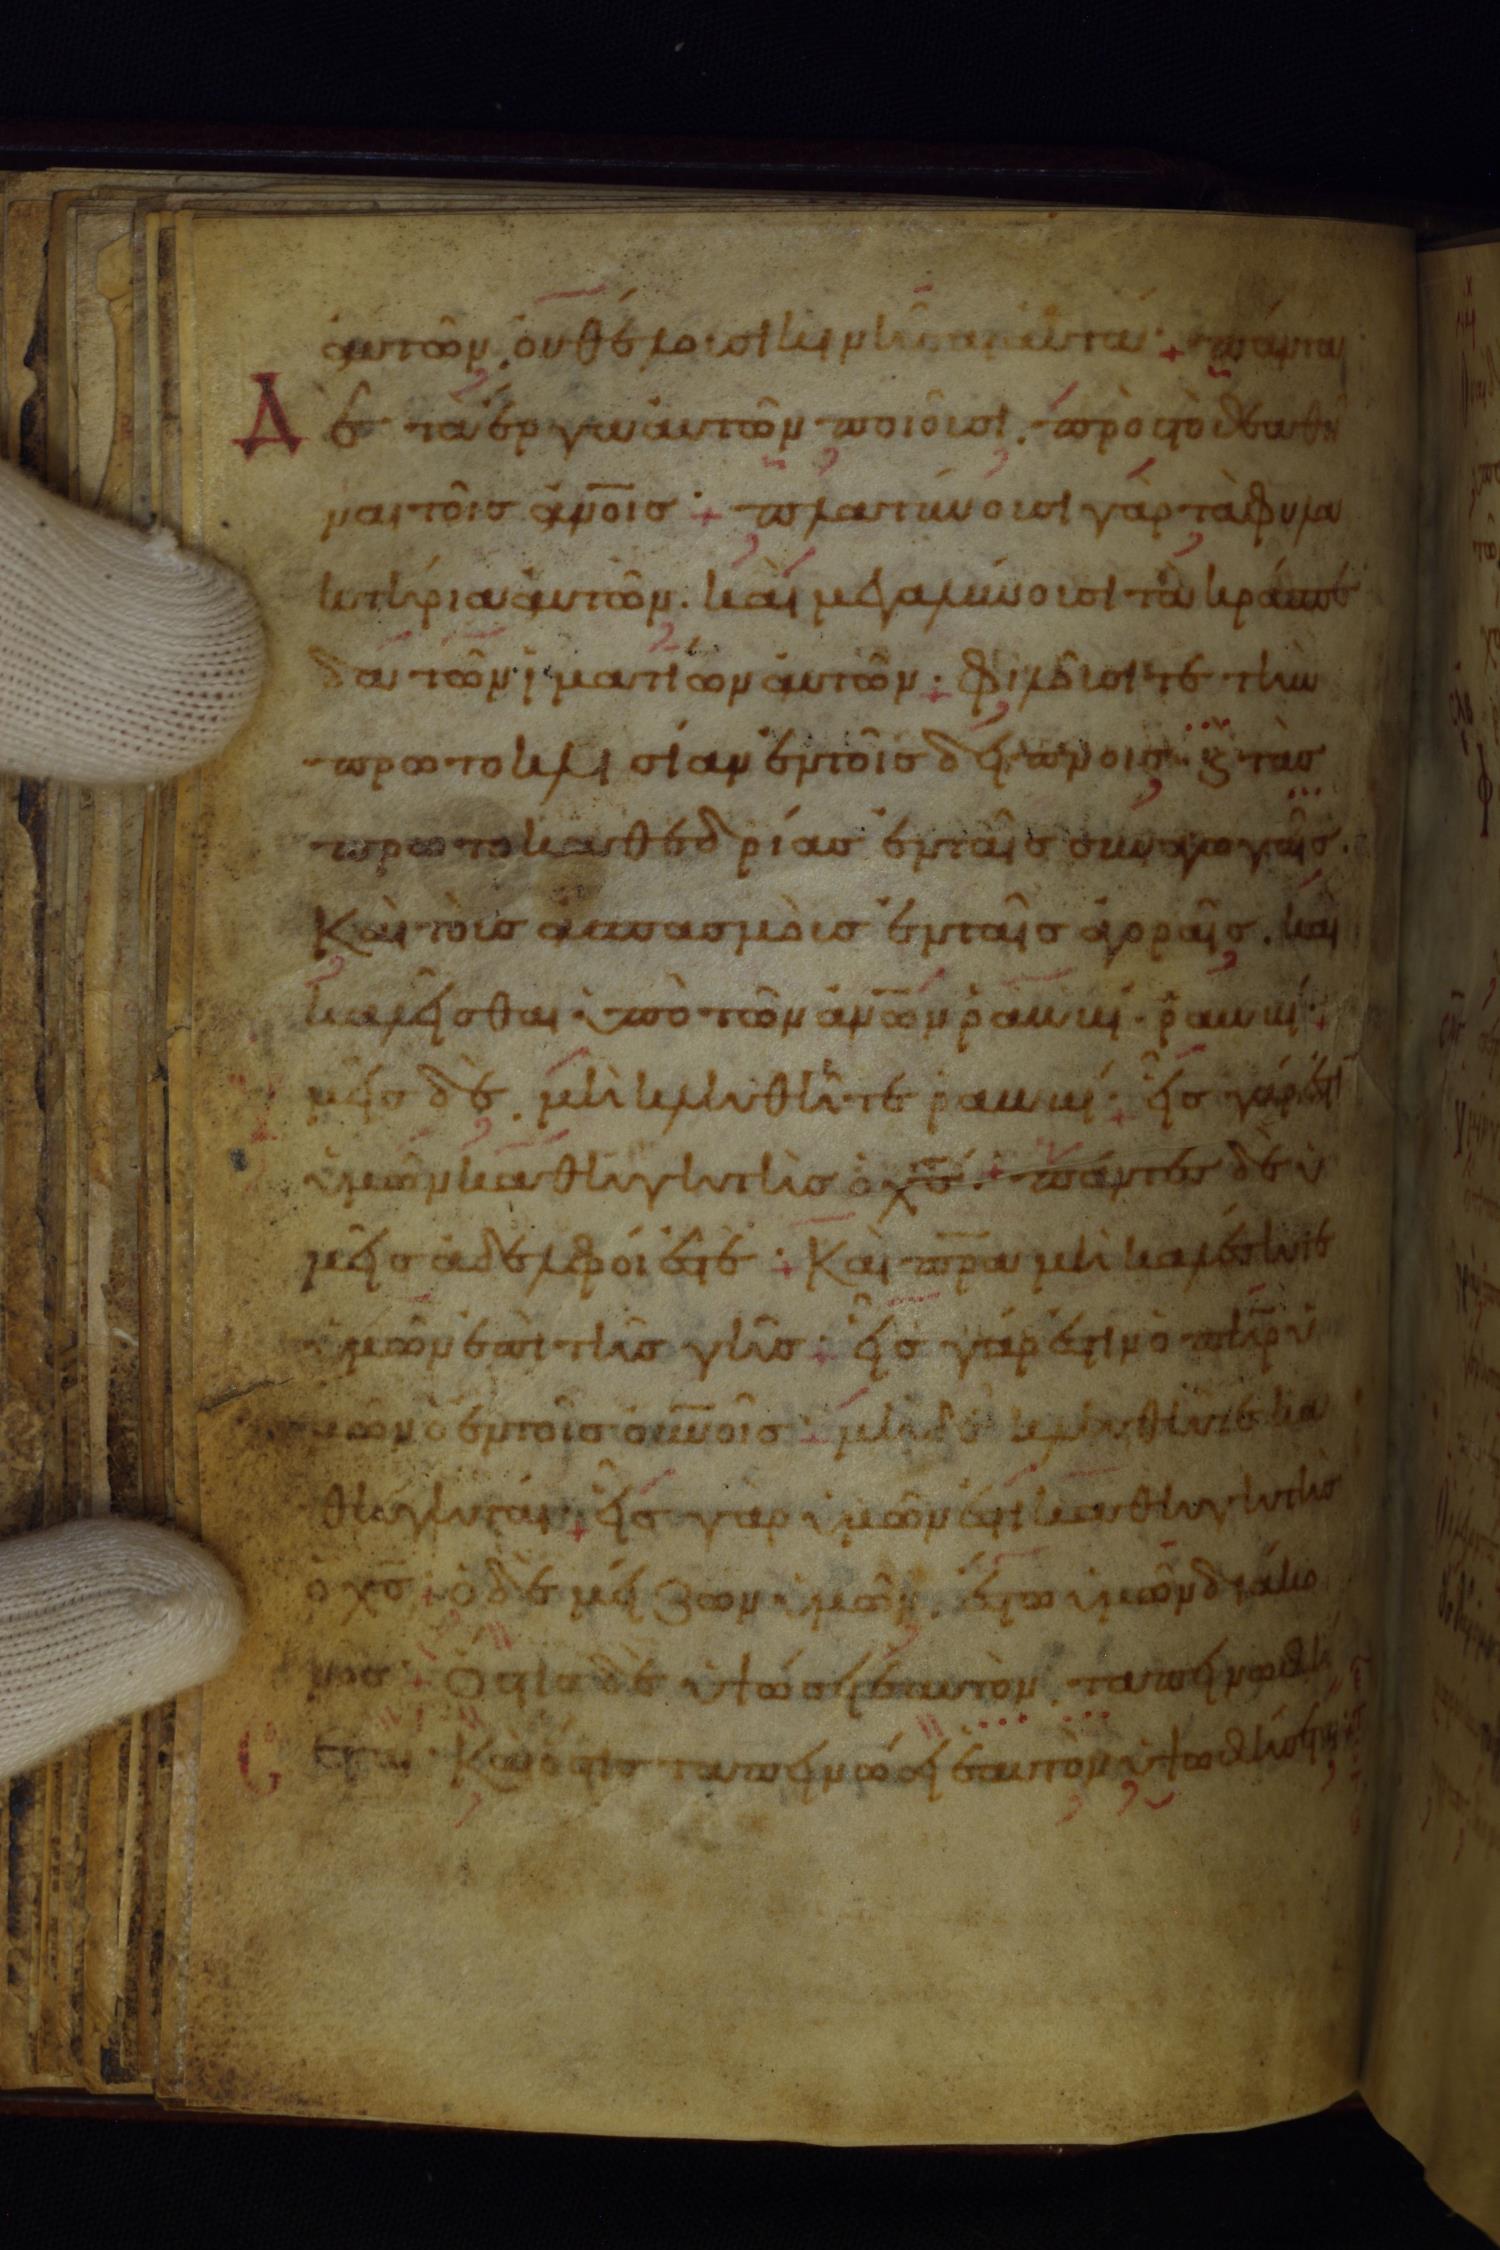 ἀυτῶν. ὀυθέλουσι κινῆσαι ἀυτά· + πάντα
Δὲ τὰ ἔργα ἀυτῶν ποιοῦσι. πρὸς τὸ θεαθῆ
ναι τοῖς ἀνοις· + πλατύνουσι γὰρ τὰ φυλα
κτήρια ἀυτῶν. καὶ μεγαλύνουσι τὰ κράσπε
δα τῶν ἱματίων ἀυτῶν· + φιλοῦσί τε τὴν
πρωτοκλησίαν ἐν τοῖς δείπνοις· κ τὰς
πρωτοκαθεδρίας ἐν ταῖς συναγωγαῖς.
Καὶ τοὺς ἀσπασμοὺς ἐν ταῖς ἀγοραῖς. καὶ
καλεῖσθαι ὑπὸ τῶν ἀνων ῥαββί· ῥαββί· + ὑ
μεῖς δὲ. μὴ κληθῆτε ῥαββί· + εἷς γάρ ἐστι
ὑμῶν καθηγητὴς ὁ χς· + πάντες δὲ ὑ
μεῖς ἀδελφοί ἐστε· + Καὶ πρα μὴ καλέσητε
ὑμῶν ἐπὶ τῆς γῆς· + εἷς γάρ ἐστιν ὁ πηρ ὑ
μῶν ὁ ἐν τοῖς ουνοις + μὴ δὲ κληθῆτε κα
θηγηταί· + εἷς γὰρ ὑμῶν ἐστι καθηγητὴς
ὁ χς + ὁ δὲ μείζων ὑμῶν. ἔσται ὑμῶν διάκο
νος· + Ὅστις δὲ ὑψώσει ἑαυτὸν. ταπεινωθή
σεται· Καὶ ὅστις ταπεινώσει ἑαυτὸν ὑψωθήσεται